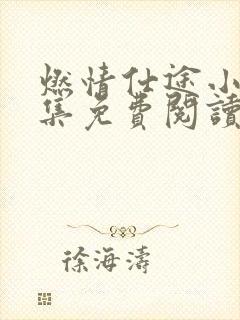 燃情仕途小
集免費閱讀
徐海濤